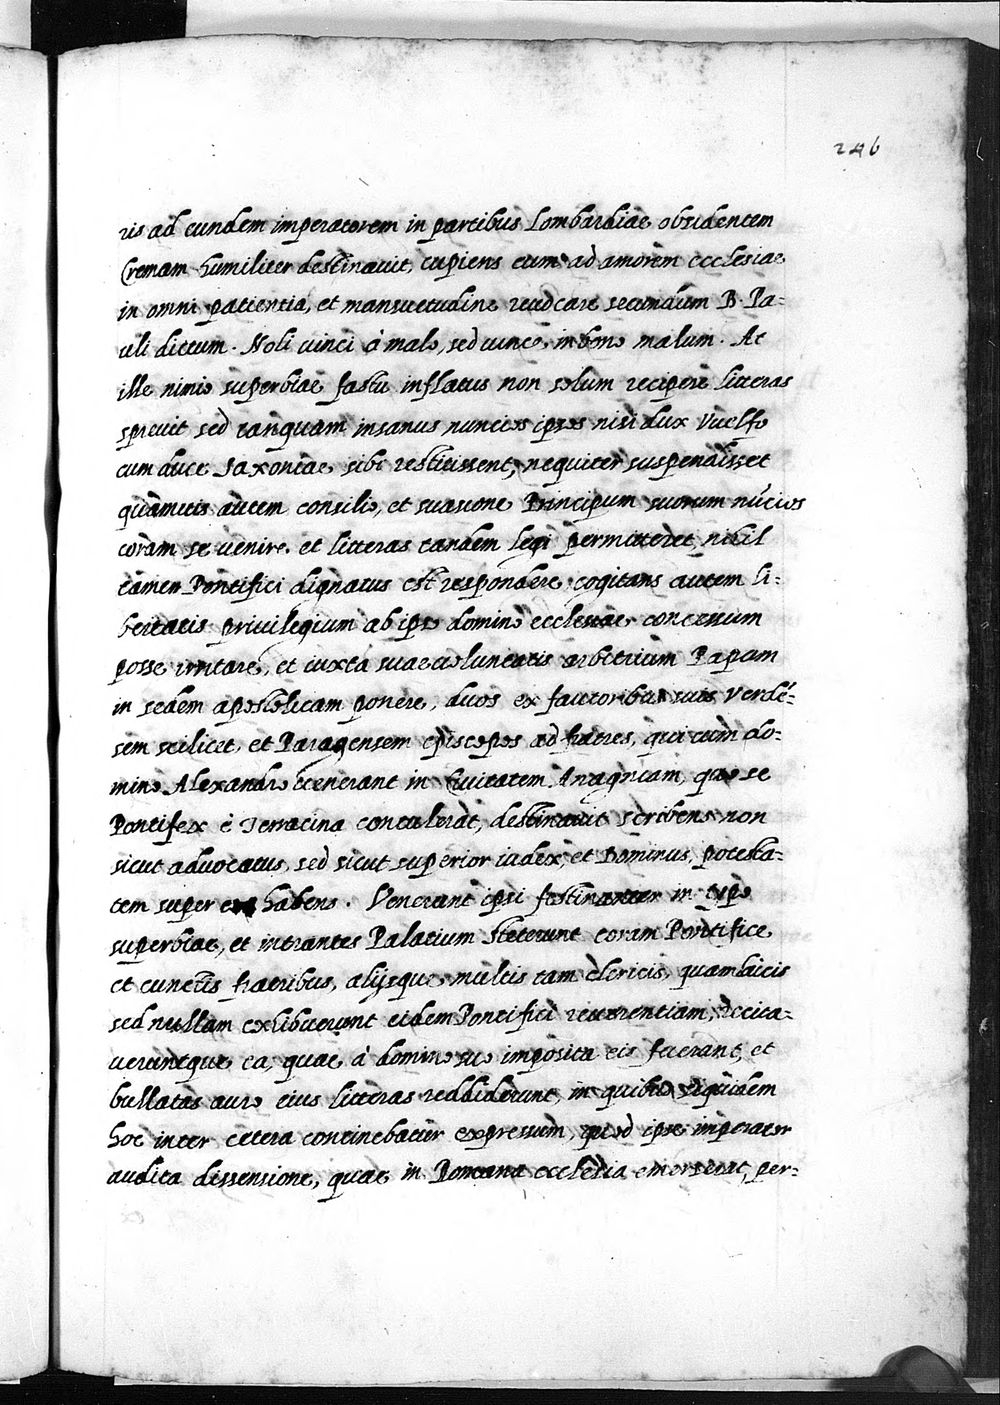 246
ris ad eundem imperatorem in partibus Lombardiae obsidentem
Cremam humiliter destinavit, cupiens eum ad amorem ecclesiae
in omni patientia, et mansuetudine revocare secundum B. Pa=
uli dictum. Noli vinci à malo, sed vince in bono malum. At
ille nimio superbiae fastu inflatus non solum recipere litteras
sprevit sed tanquam insanus nuncios ipsos nisi dux Vuelfo
cum duce Saxoniae sibi restitissent, nequiter suspendisset
quamvis autem consilio, et suasione Principum suorum nũcios
coram se venire et litteras tandem legi permitteret, nihil
tamen Pontifici dignatus est respondere, cogitans autem li=
bertatis privilegium ab ipso domino ecclesiae concessum
posse irritare, et iuxta suae voluntatis arbitrium Papam
in sedem apostolicam ponere, duos ex fautoribus suis Verdẽ=
sem scilicet, et Paragensem episcopos ad fratres, qui cum do=
mino Alexandro venerant in Civitatem Anagniam, quo se
Pontifex è Terracina contulerat, destinavit scribens non
sicut advocatus, sed sicut superior iudex, et Dominus, potesta=
tem super eos habens. Venerant ipsi festinanter in typo
superbiae, et intrantes Palatium steterunt coram Pontifice,
et cunctis fratribus, alijsque multis tam clericis, quam laicis
sed nullam exhibuerunt eidem Pontifici reverentiam, recita=
veruntque ea, quae à domino suo imposita eis fuerant, et
bullatas auro eius litteras reddiderunt, in quibus siquidem
hoc inter cetera continebatur expressum, quod ipse imperator
audita dissensione, quae in Romana ecclesia emerserat, per=